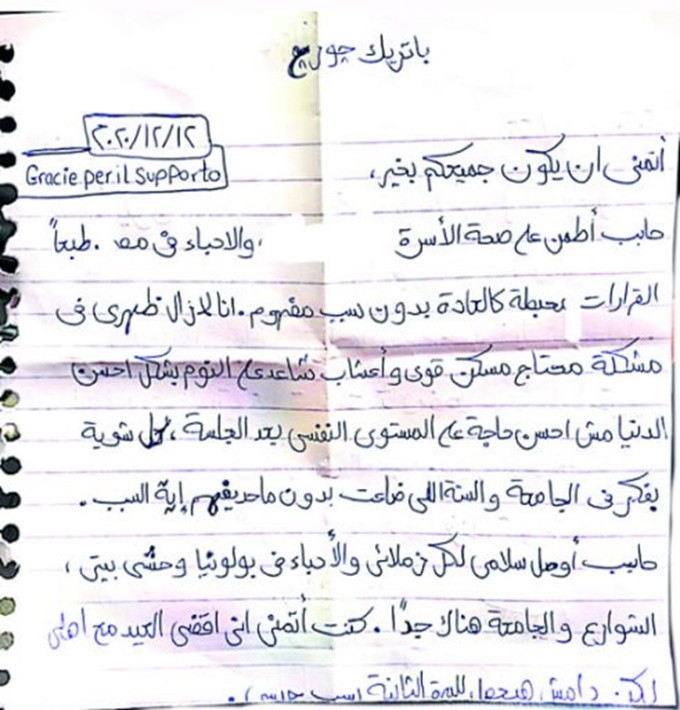 باتريك جورج
٢٠٢٠/١٢/١٢
Gracie per il Supporto
أتمنى ان يكون جميعكم بخير،
حابب أطمن على صحة الأسرة والاحباء فى مصر. طبعاً
القرارات محبطة كالعادة بدون سبب مفهوم. انا لازال ظهرى فى
مشكلة محتاج مسكن قوى وأعشاب تساعد على النوم بشكل احسن
الدنيا مش احسن حاجة على المستوى النفسى بعد الجلسة، كل شوية
بفكر فى الجامعة والسنة اللى ضاعت بدون ماحد يفهم إية السبب.
حابب أوصل سلامى لكل زملائى والأحباء فى بولونيا وحشنى بيتى،
الشوارع والجامعة هناك جدًا. كنت أتمنى انى اقضى العيد مع اهلى
لكن دا مش هيحصل للمرة الثانية بسبب حبسى).